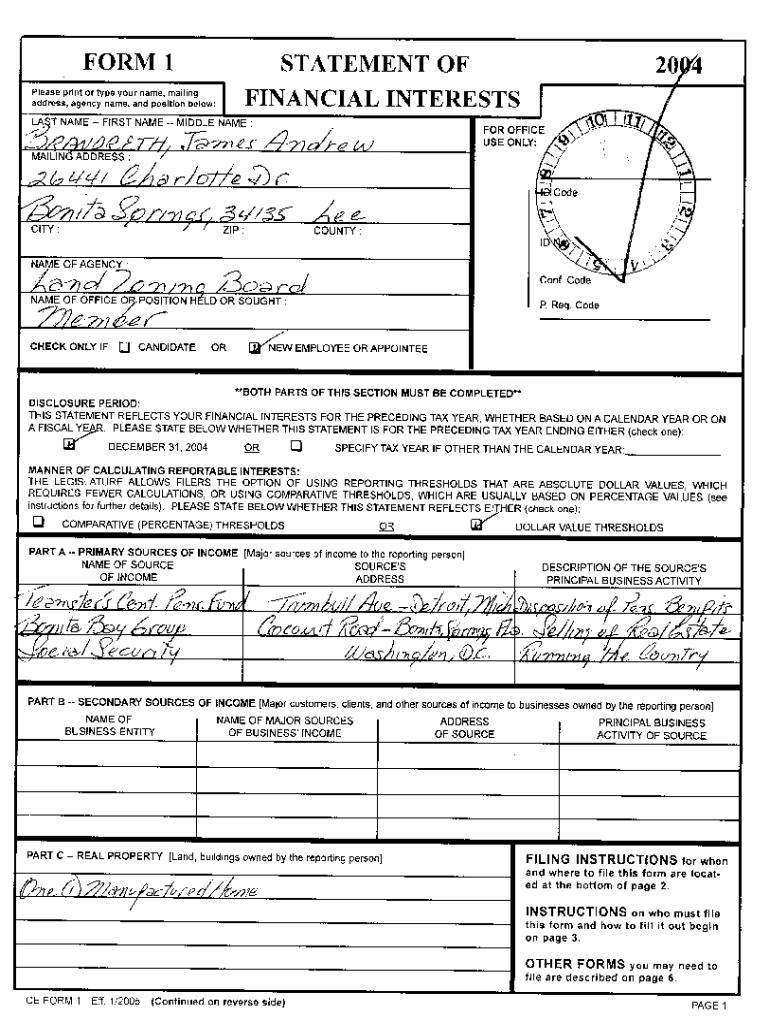 FORM 1
STATEMENT OF
FINANCIAL INTERESTS
2004
Please print or type your name, mailing
address, agency name, and position below:
LAST NAME -- FIRST NAME -- MIDDLE NAME :
BRANDRETH, James Andrew
MAILING ADDRESS :
26441 Charlotte Dr.
Bonita Springs, 34135 Lee
CITY : ZIP : COUNTY :
NAME OF AGENCY :
Land Zoning Board
NAME OF OFFICE OR POSITION HELD OR SOUGHT :
Member
CHECK ONLY IF CANDIDATE OR NEW EMPLOYEE OR APPOINTEE
FOR OFFICE
USE ONLY:
8 9 10 11 12
7 6 5 4 3 2 1
ID Code
ID No.
Conf. Code
P. Req. Code
**BOTH PARTS OF THIS SECTION MUST BE COMPLETED**
DISCLOSURE PERIOD:
THIS STATEMENT REFLECTS YOUR FINANCIAL INTERESTS FOR THE PRECEDING TAX YEAR, WHETHER BASED ON A CALENDAR YEAR OR ON
A FISCAL YEAR. PLEASE STATE BELOW WHETHER THIS STATEMENT IS FOR THE PRECEDING TAX YEAR ENDING EITHER (check one):
DECEMBER 31, 2004 OR SPECIFY TAX YEAR IF OTHER THAN THE CALENDAR YEAR:
MANNER OF CALCULATING REPORTABLE INTERESTS:
THE LEGISLATURE ALLOWS FILERS THE OPTION OF USING REPORTING THRESHOLDS THAT ARE ABSOLUTE DOLLAR VALUES, WHICH
REQUIRES FEWER CALCULATIONS, OR USING COMPARATIVE THRESHOLDS, WHICH ARE USUALLY BASED ON PERCENTAGE VALUES (see
instructions for further details). PLEASE STATE BELOW WHETHER THIS STATEMENT REFLECTS EITHER (check one):
COMPARATIVE (PERCENTAGE) THRESHOLDS OR DOLLAR VALUE THRESHOLDS
PART A -- PRIMARY SOURCES OF INCOME [Major sources of income to the reporting person]
NAME OF SOURCE
OF INCOME
SOURCE'S
ADDRESS
DESCRIPTION OF THE SOURCE'S
PRINCIPAL BUSINESS ACTIVITY
Teamster's Cent. Pens. Fund Turnbull Ave - Detroit, Mich Disposition of Pens. Benifits
Bonita Bay Group Cocount Road - Bonita Springs, Fla. Selling of Real Estate
Social Security Washington, D.C. Running the Country
PART B -- SECONDARY SOURCES OF INCOME [Major customers, clients, and other sources of income to businesses owned by the reporting person]
NAME OF
BUSINESS ENTITY
NAME OF MAJOR SOURCES
OF BUSINESS' INCOME
ADDRESS
OF SOURCE
PRINCIPAL BUSINESS
ACTIVITY OF SOURCE
PART C -- REAL PROPERTY [Land, buildings owned by the reporting person]
One (1) Manufactured Home
FILING INSTRUCTIONS for when
and where to file this form are locat-
ed at the bottom of page 2.
INSTRUCTIONS on who must file
this form and how to fill it out begin
on page 3.
OTHER FORMS you may need to
file are described on page 6.
CE FORM 1 Eff. 1/2005 (Continued on reverse side)
PAGE 1